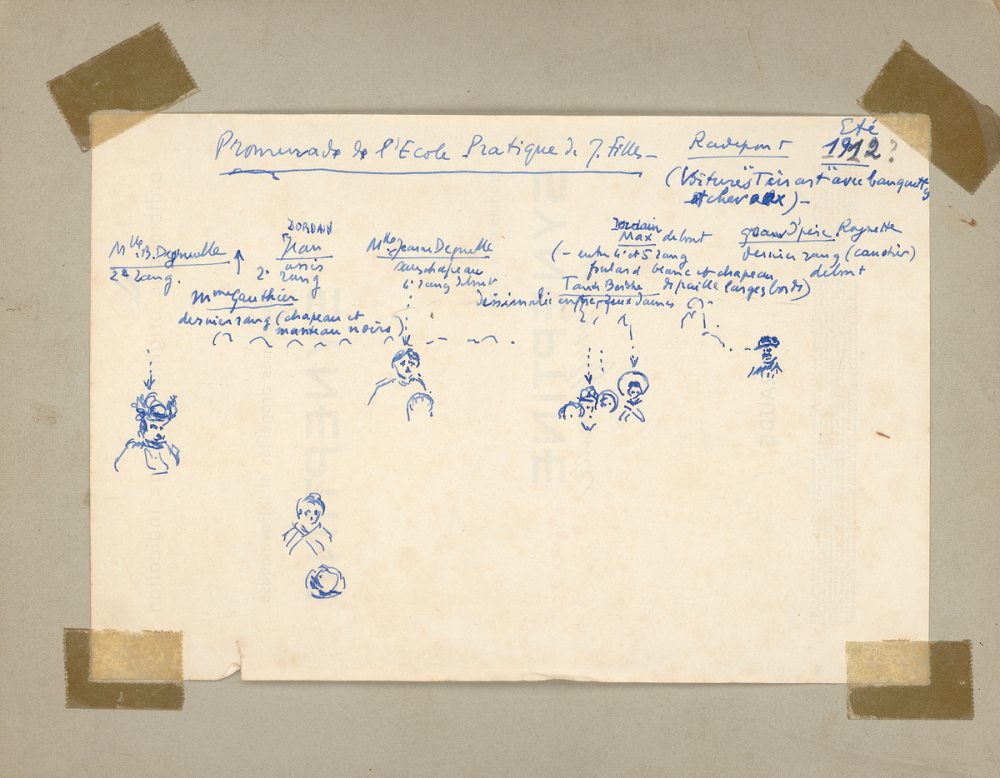 Promenade de l'Ecole Pratique de J. Filles — Radepont Eté 1912?
(Voitures "Tenast" avec banquettes
et chevaux) —
Mlle B. Depnelle
2e rang.
JORDAIN
Jean
assis
2e rang
Mlle Jeanne Depnelle
sans chapeau
6e rang debout
Jordain
Max debout
(— entre 4e et 5e rang
foulard blanc et chapeau
de paille larges bords)
Tante Berthe
dissimulée entre deux dames
grand'père Rayrette
dernier rang (canotier)
debout
Mme Gauthier
dernier rang (chapeau et
manteau noirs)